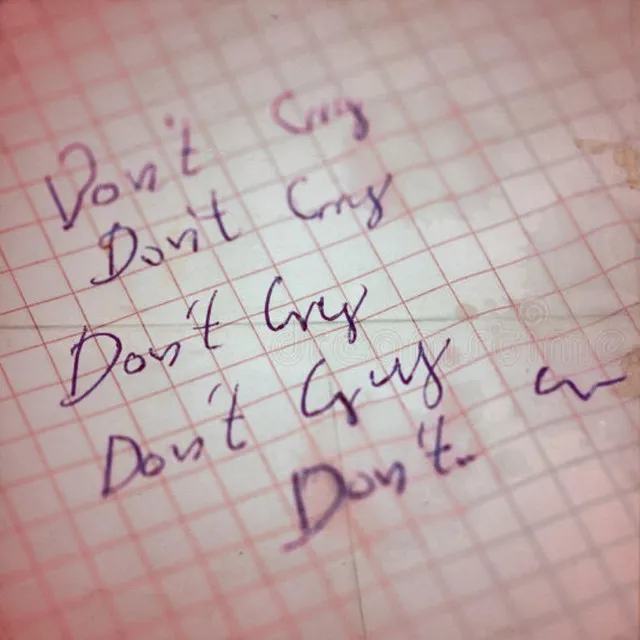 Don't Cry
Don't Cry
Don't Cry
Don't Cry
Don't.
dreamstime